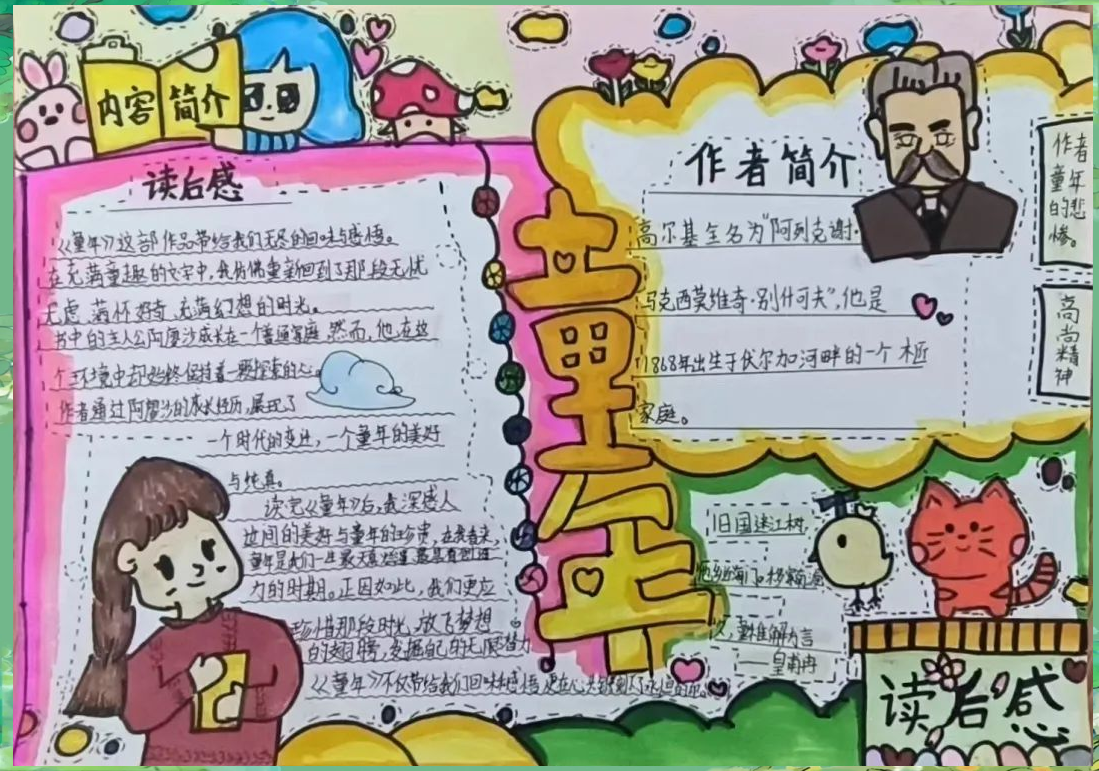 内容简介
读后感
《童年》这部作品带给我们无尽的回味与感悟。
在充满童趣的文字中,我仿佛重新回到了那段无忧
无虑 满怀好奇 充满幻想的时光。
书中的主人公阿廖沙成长在一个普通家庭 然而,他在这
个环境中却始终保持着一颗探索的心。
作者通过阿廖沙的成长经历,展现了
一个时代的变迁,一个童年的美好
与纯真。
读完《童年》后,我深感人
世间的美好与童年的珍贵,在我看来,
童年是我们一生最天真
力的时期。正因如此,我们更应
珍惜那段时光,放飞梦想
的翅膀,发掘自己的无尽潜力
《童年》不仅带给我们回味感悟
童年
作者简介
高尔基全名为“阿列克谢·
马克西莫维奇·别什可夫”,他是
1868年出生于伏尔加河畔的一个木匠
家庭。
作者
童年
的悲
惨。
高
尚
精
神
旧国迷江树
难解为言
——皇甫冉
读后感